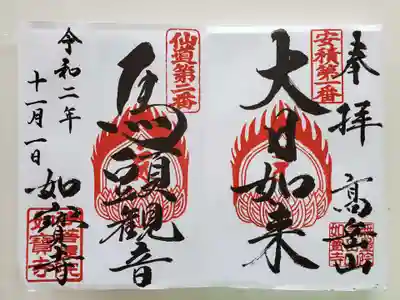 奉拝
安積第一番
大日如来
高岳山
仙道第二番
馬頭観音
令和二年
十一月一日
如寶寺